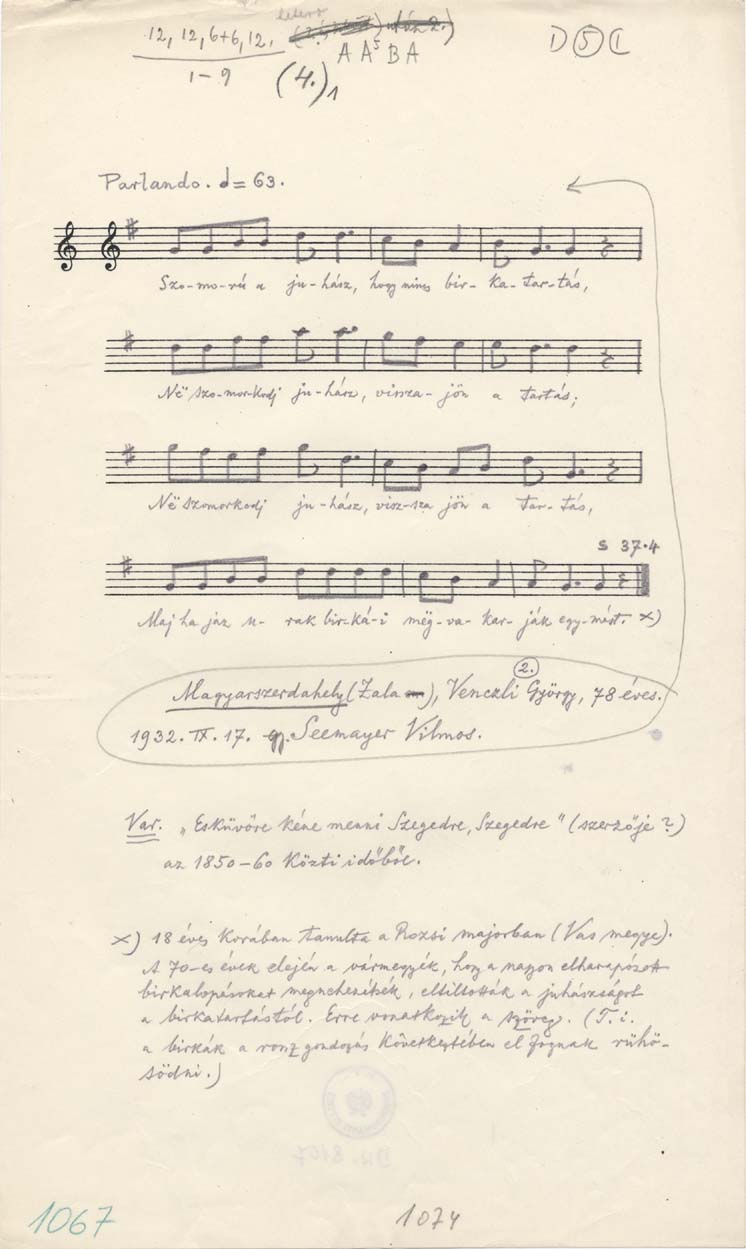 12, 12, 6+6, 12.
A A⁵ B A
D ⑤ C
1–9
(4.)₁
Parlando. ♩= 63.
Szo-mo-rú a ju-hász, hogy nincs bir-ka-tar-tás,
Në szo-mor-kodj ju-hász, vissza-jön a tartás;
Në szomorkodj ju-hász, visz-sza jön a tar-tás,
S 37.4
Maj ha jaz u-rak bir-ká-i mëg-va-kar-ják egy-mást. x)
2.
Magyarszerdahely (Zala), Venczli György, 78 éves.
1932. IX. 17. gy. Seemayer Vilmos.
Var. „Esküvőre kéne menni Szegedre, Szegedre" (szerzője?)
az 1850–60 közti időből.
x) 18 éves korában tanulta a Rozsi majorban (Vas megye).
A 70-es évek elején a vármegyék, hogy a nagyon elharapózott
birkalopásokat megnehezítsék, eltiltották a juhászságot
a birkatartástól. Erre vonatkozik a szöveg. (T. i.
a birkák a rossz gondozás következtében el fognak rühö-
södni.)
1067
1074